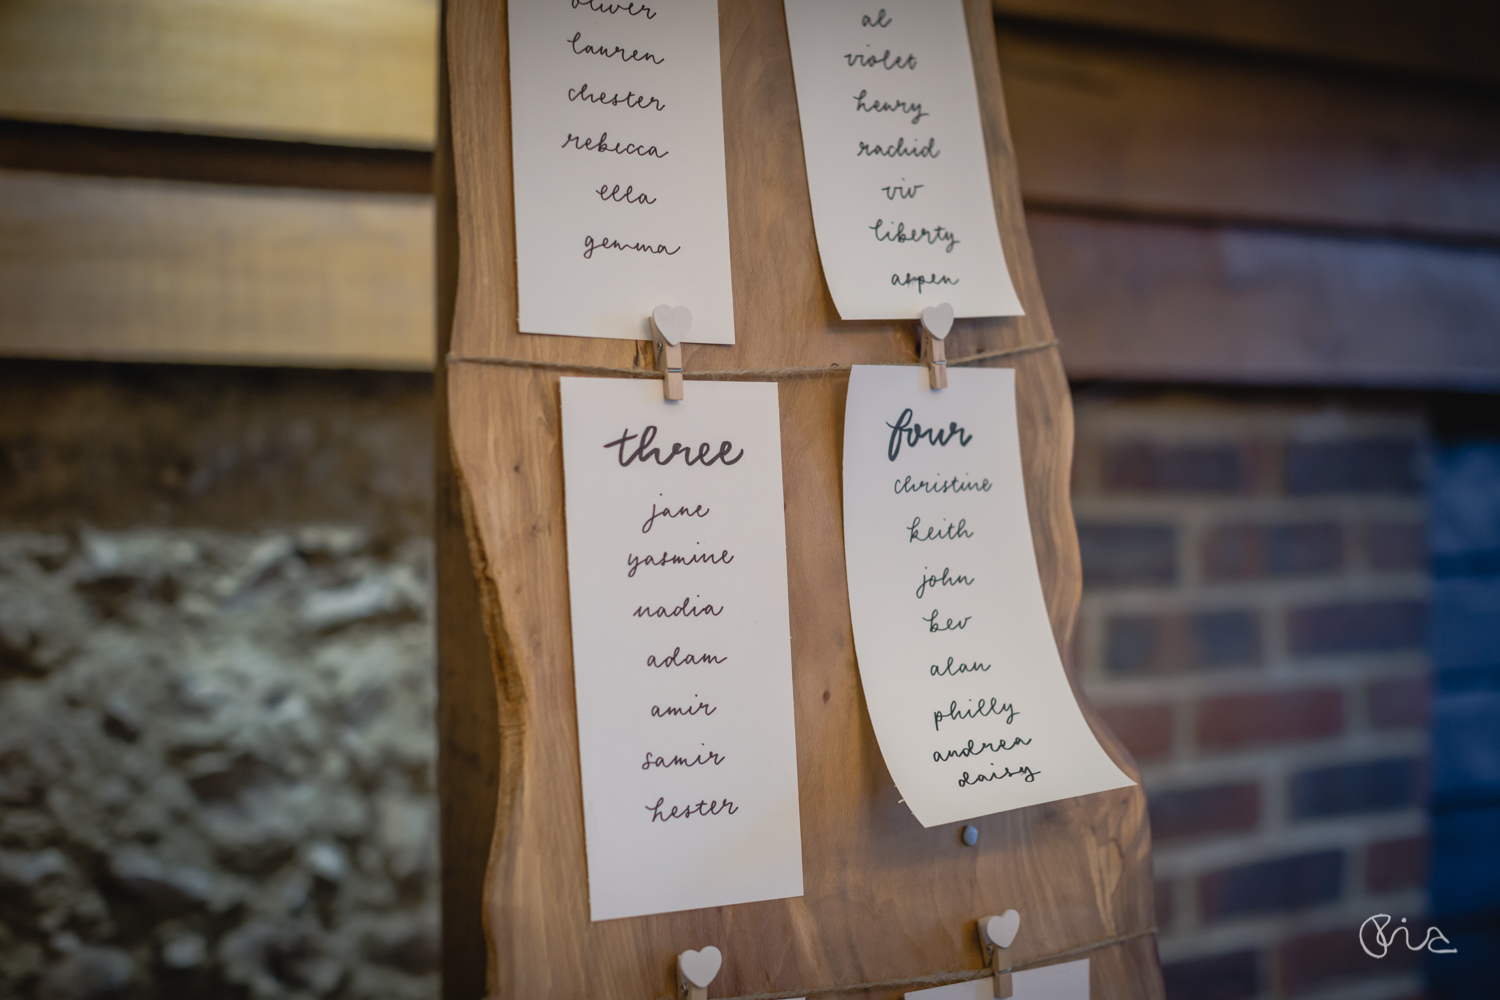 oliver
lauren
chester
rebecca
ella
gemma
al
violet
henry
rachid
viv
liberty
aspen
three
jane
yasmine
nadia
adam
amir
samir
hester
four
christine
keith
john
bev
alan
philly
andrea
daisy